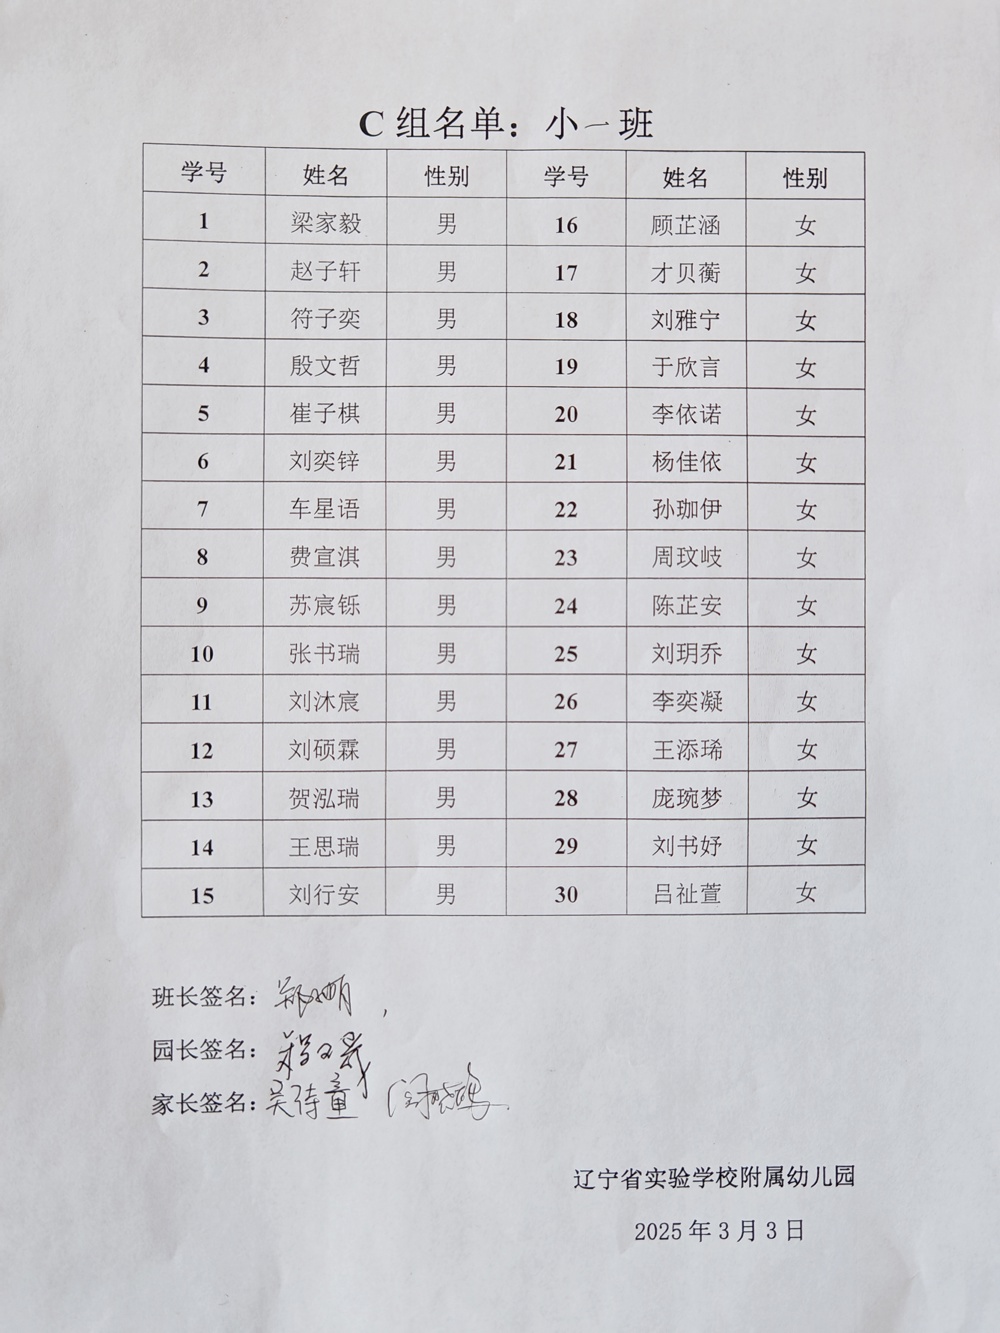 C 组名单：小一班
学号 姓名 性别 学号 姓名 性别
1 梁家毅 男 16 顾芷涵 女
2 赵子轩 男 17 才贝蘅 女
3 符子奕 男 18 刘雅宁 女
4 殷文哲 男 19 于欣言 女
5 崔子棋 男 20 李依诺 女
6 刘奕锌 男 21 杨佳依 女
7 车星语 男 22 孙珈伊 女
8 费宣淇 男 23 周玟岐 女
9 苏宸铄 男 24 陈芷安 女
10 张书瑞 男 25 刘玥乔 女
11 刘沐宸 男 26 李奕凝 女
12 刘硕霖 男 27 王添琋 女
13 贺泓瑞 男 28 庞琬梦 女
14 王思瑞 男 29 刘书妤 女
15 刘行安 男 30 吕祉萱 女
班长签名：
园长签名：
家长签名：吴诗童
辽宁省实验学校附属幼儿园
2025 年 3 月 3 日